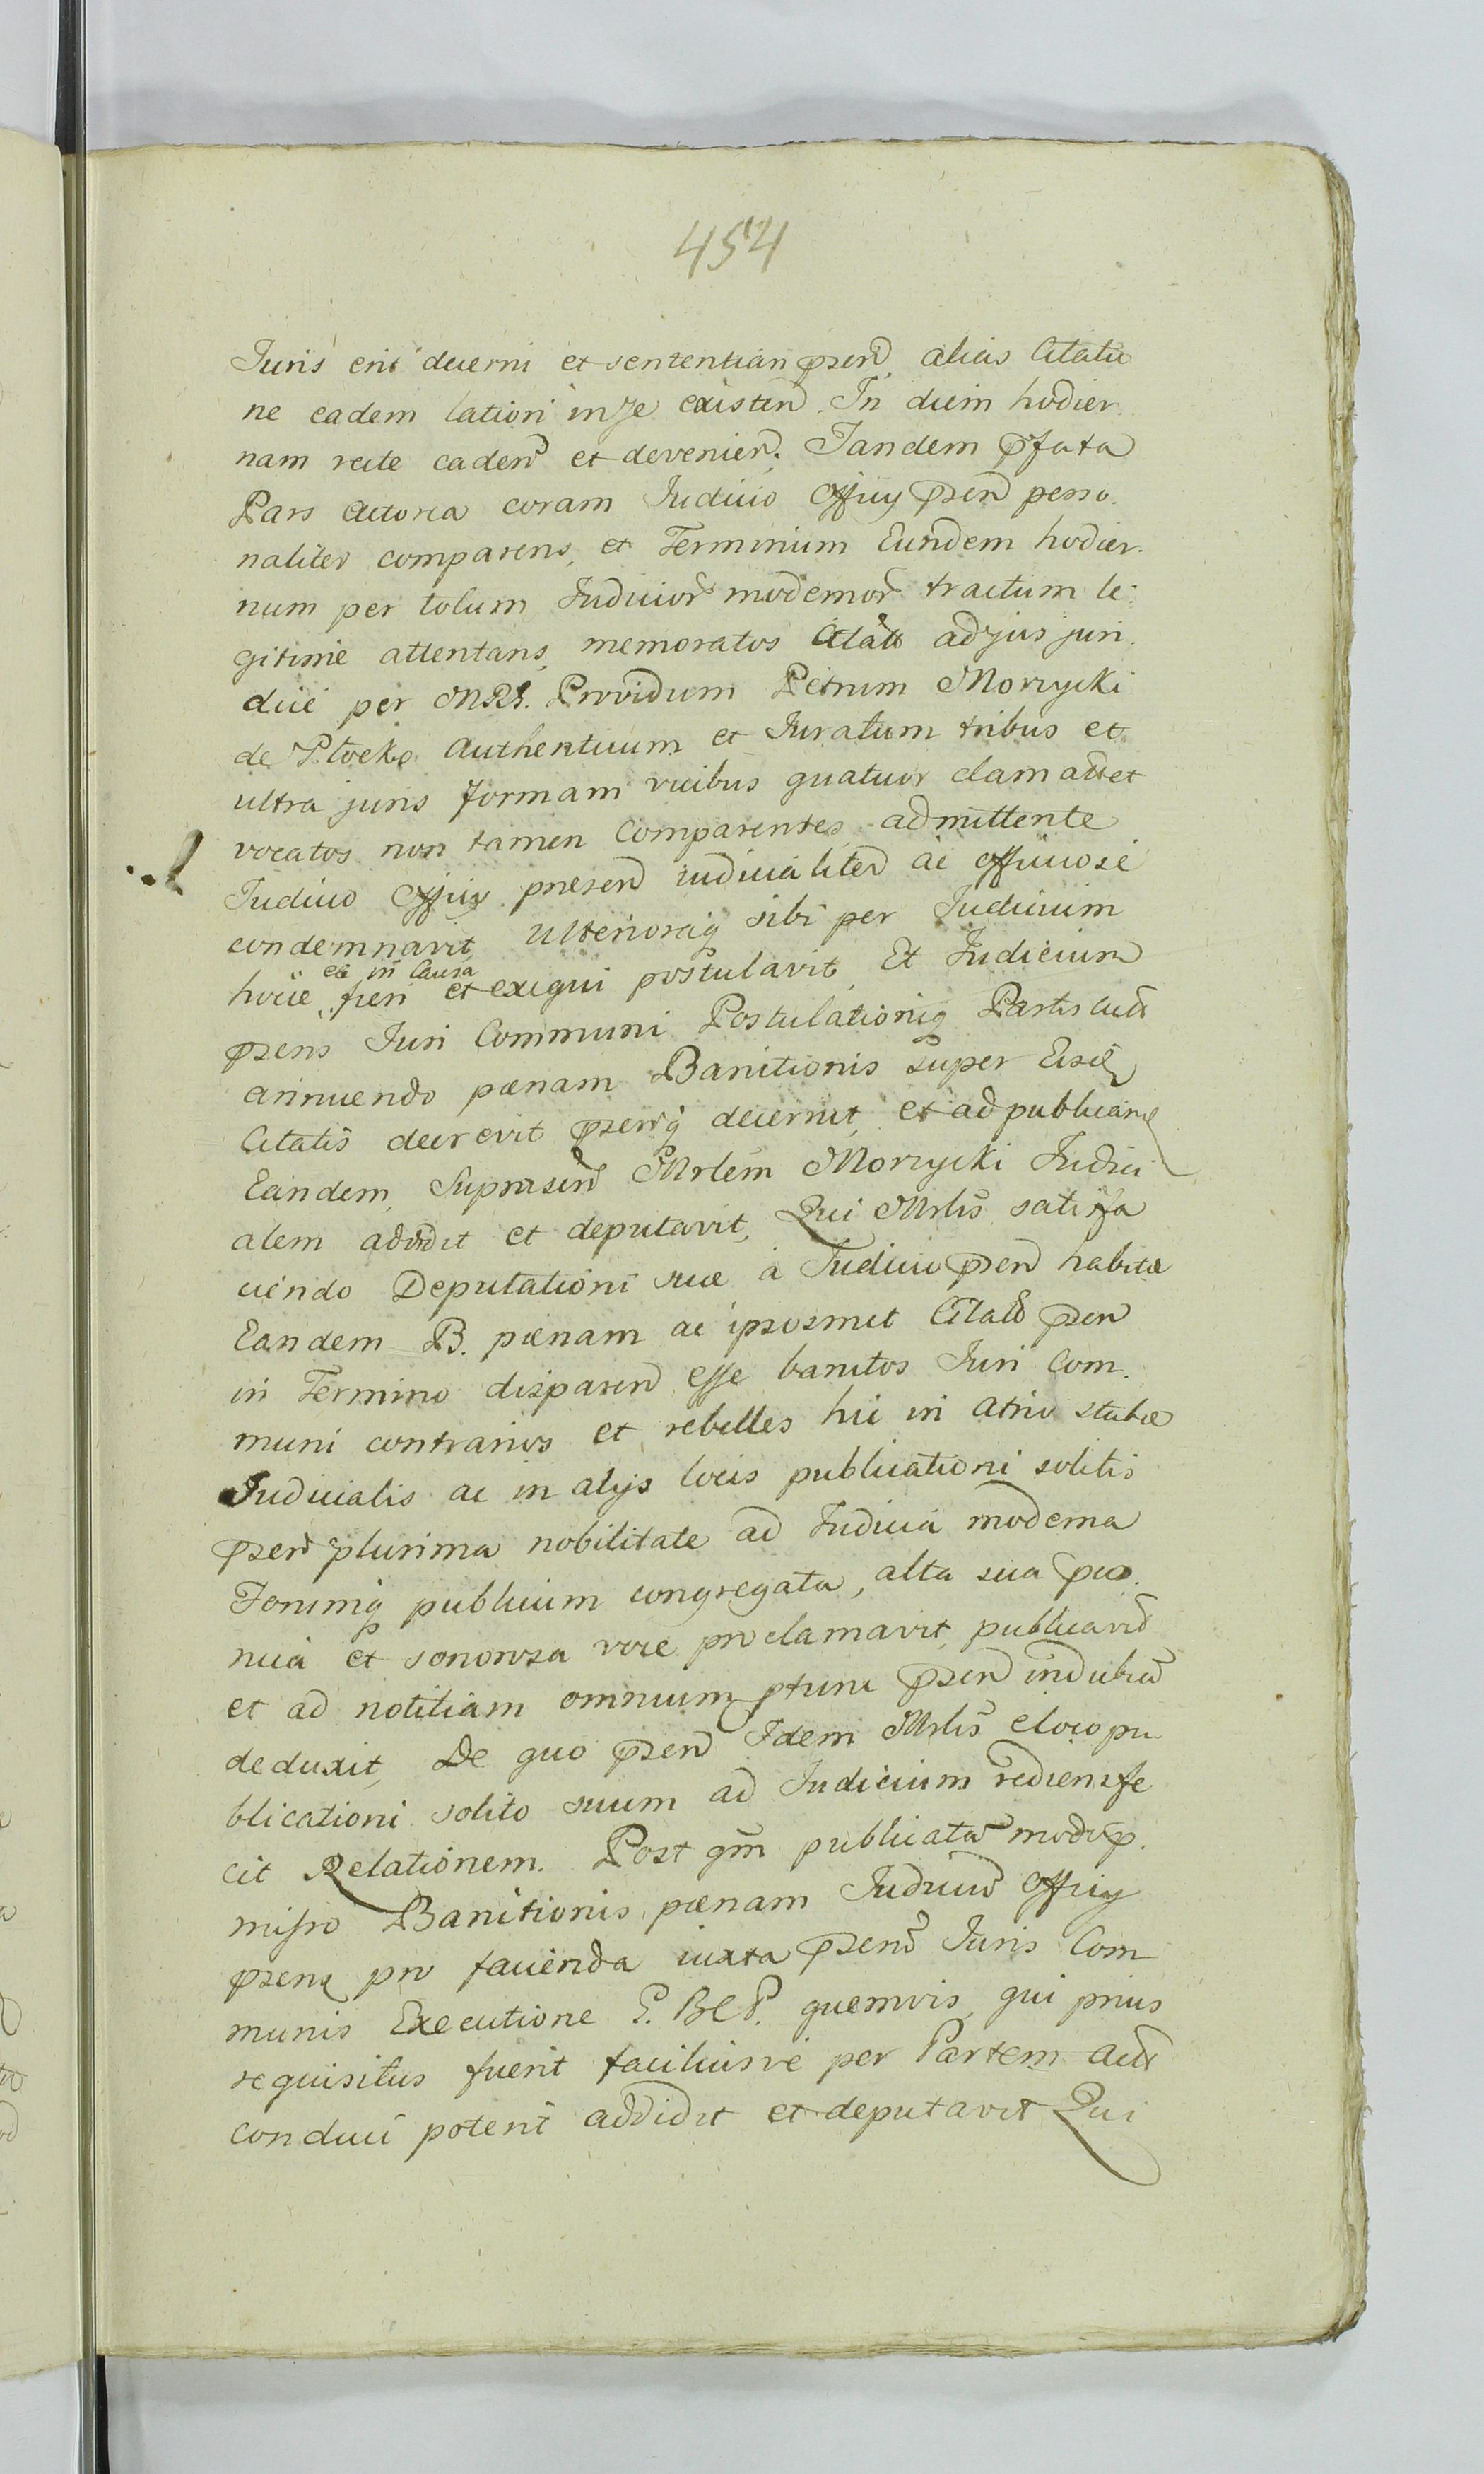 454
Juris erit decerni et sententian przen̄d, alias Citatio
ne eadem latiori in se existen̄d. In diem hodier
nam recte caden̄ et devenien̄. Tandem p̄fata
Pars Actorea coram Judicio Officij przen̄d perso
naliter comparens, et Terminum Eundem hodier
num per totum Judicior̄ modernor̄ tractum le
gitime attentans, memoratos Citatos ad jus juri
dice per MRS. Providum Petrum Morzycki
de Plocko Authenticum et Juratum tribus et
ultra juris formam vicibus quatuor clamatos et
vocatos non tamen Comparentes, admittente
Judicio Officij presen̄d iudicialiter ac officiose
condemnavit ulterioraq sibi per Judicium
ea in Causa
hocce fieri et exequi postulavit, Et Judicium
przens Juri Communi Postulationiq Partis Act̄
annuendo pænam Banitionis super Eisd̄
Citatis decrevit przen̄q decernit, et ad publicand̄
Eandem, Suprasen̄d Mrlem Morzycki Judici
alem addidit et deputavit, Qui Mrlis satisfa
ciendo Deputationi suæ a Judicio przen̄d habitæ
Eandem B. pænam ac ipsosmet Citatos przen
in Termino disparen̄d esse banitos Juri Com
muni contrarios et rebelles hic in atrio stubæ
Judicialis ac in alijs locis publicationi solitis
przen̄d plurima nobilitate ad Judicia moderna
Forumq publicum congregata, alta sua præ
nuia et sonorosa voce proclamavit, publicavit
et ad notitiam omnium ptunc przen̄d indubie
deduxit, De quo przen̄d Idem Mrlis e loco pu
blicationi solito suum ad Judicium rediens fe
cit Relationem. Post qm̄ publicatam modo p
misso Banitionis pænam Judicium Officij
przens pro facienda iuxta przen̄d Juris Com
munis Executione G. BCP. quemvis, qui prius
requisitus fuerit faciliusve per Partem Act̄
conduci poterit addidit et deputavit Qui